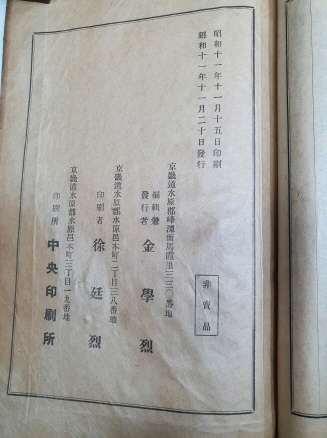 昭和十一年十一月十五日印刷
昭和十一年十一月二十日發行
非賣品
京畿道水原郡峰潭面馬霞里三三〇番地
編輯兼
發行者 金學烈
京畿道水原郡水原邑本町二丁目三八番地
印刷者 徐廷烈
京畿道水原郡水原邑本町三丁目一九番地
印刷所 中央印刷所